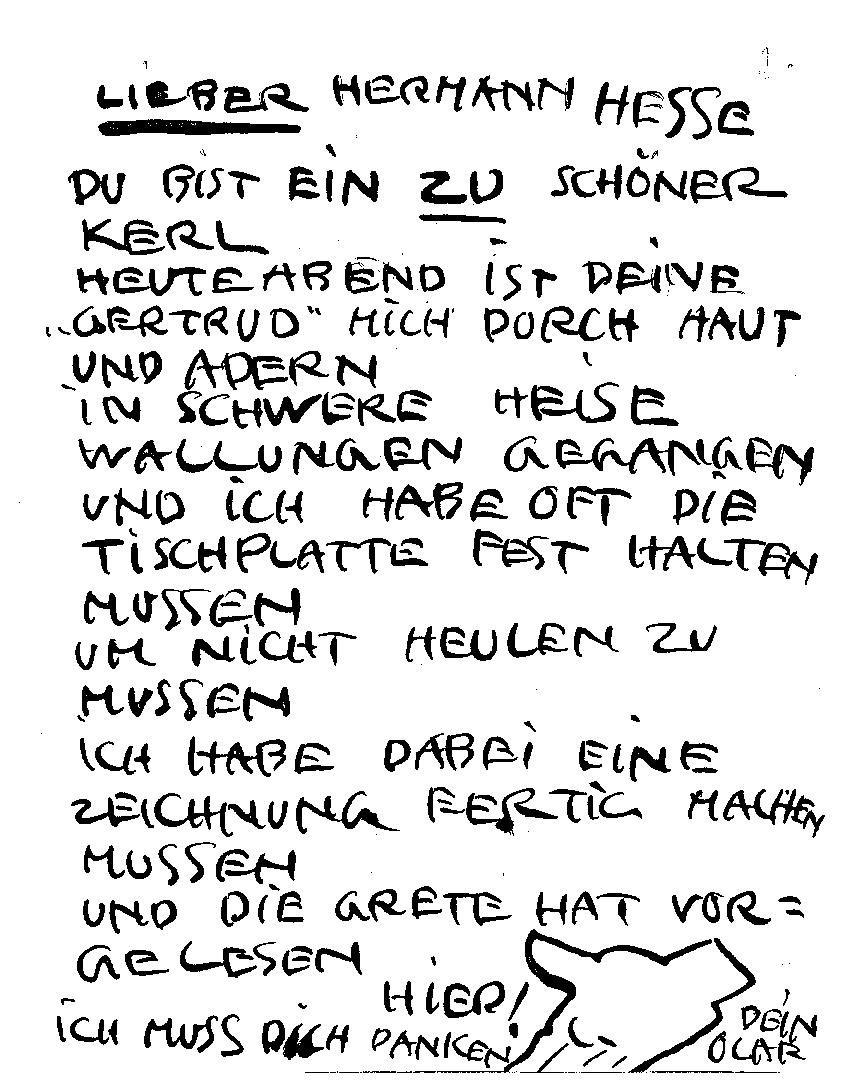 LIEBER HERMANN HESSE
DU BIST EIN ZU SCHÖNER
KERL
HEUTE ABEND IST DEINE
„GERTRUD" MICH DORCH HAUT
UND ADERN
IN SCHWERE HEISE
WALLUNGEN GEGANGEN
UND ICH HABE OFT DIE
TISCHPLATTE FEST HALTEN
MUSSEN
UM NICHT HEULEN ZU
MUSSEN
ICH HABE DABEI EINE
ZEICHNUNG FERTIG MACHEN
MUSSEN
UND DIE GRETE HAT VOR=
GELESEN
HIER!
ICH MUSS DICH DANKEN
DEIN
OLAR